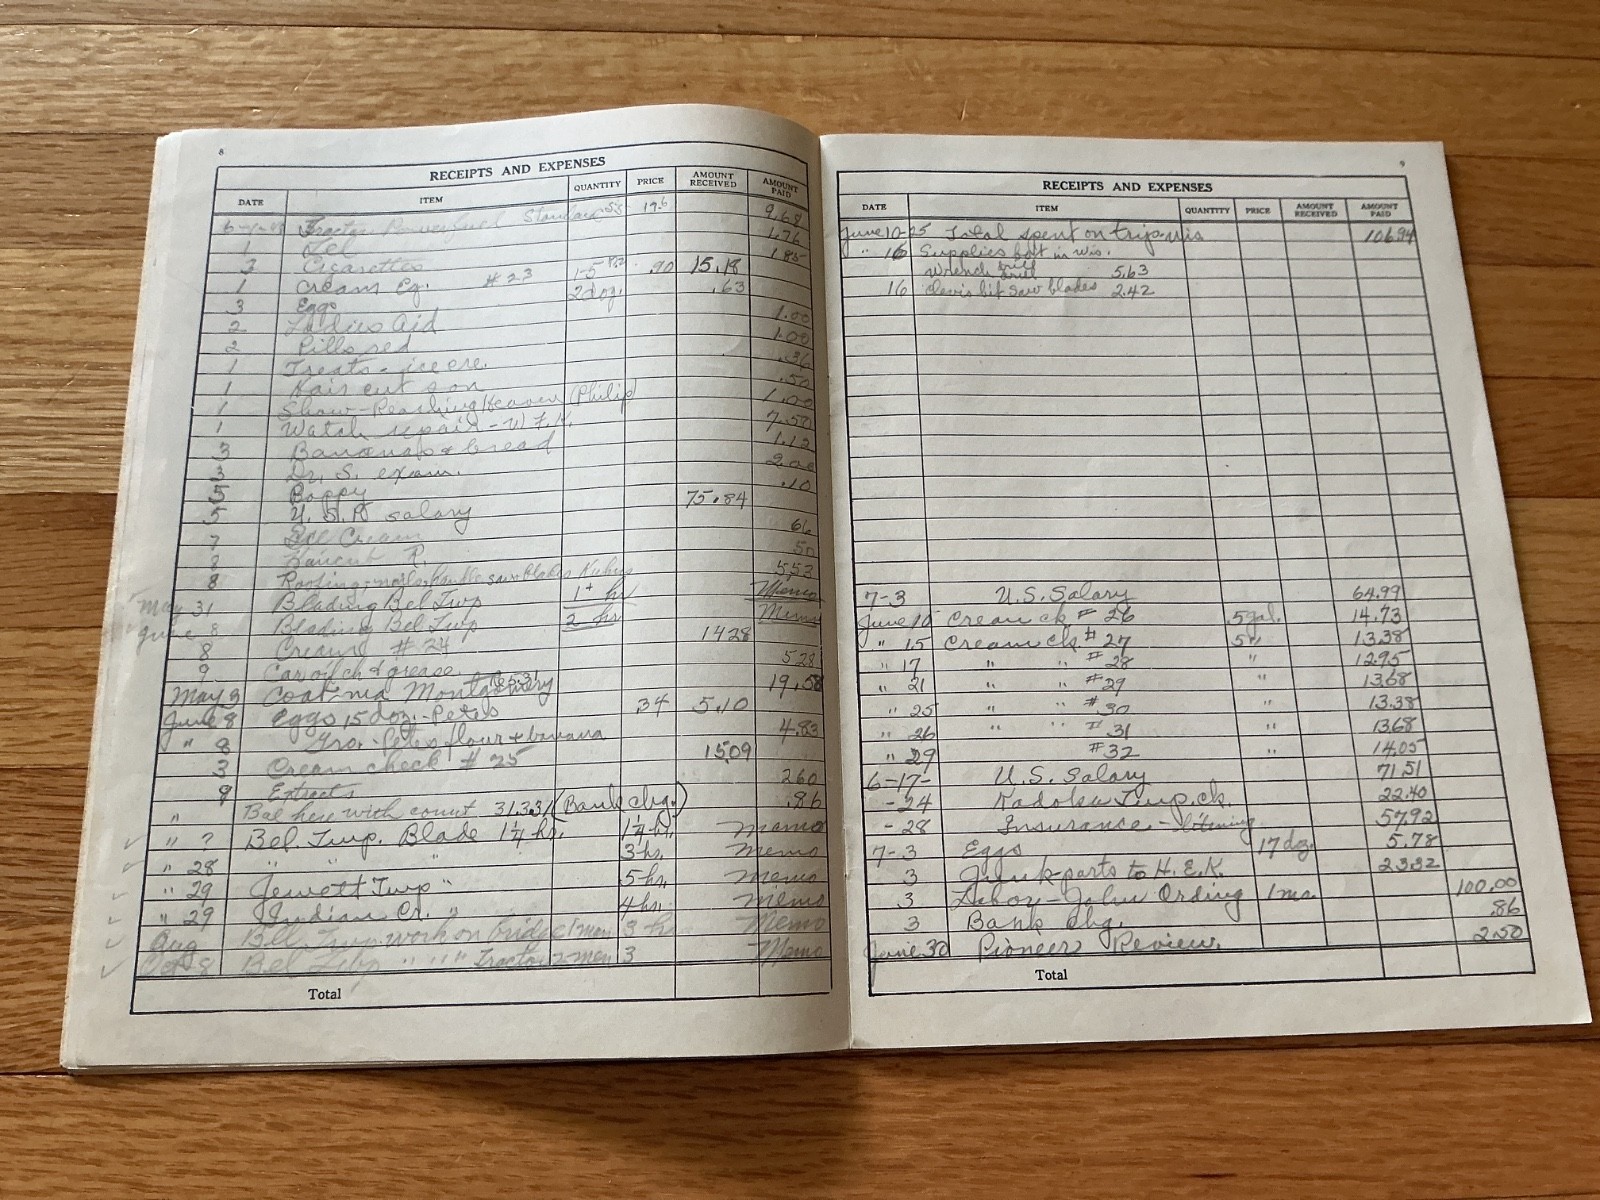 8
RECEIPTS AND EXPENSES
DATE ITEM QUANTITY PRICE AMOUNT RECEIVED AMOUNT PAID
Tractor 19.6 9.68
1 1.76
3 Cigarettes 1.85
1 Cream Eq. #23 1-5 .90 15.18
3 Eggs 2 doz. .63
2 Ladies Aid 1.00
2 Pills red 1.00
1 Treats - ice cre. .36
1 Hair cut son .50
1 Show - Reaching Heaven (Philip) 1.00
1 Watch repair - W.F.K. 7.50
3 Bananas & bread 1.12
3 Dr. S. exam. 2.00
5 Poppy .10
5 U.S.R salary 75.84
7 Ice Cream 66
8 Haircut R. 50
8 Roofing - nails, handle saw blades 5.53
May 31 Blading Bel Twp 1+ hr Memo
June 8 Blading Bel Twp 2 hr Memo
8 Cream # 24 1428
9 Car oil ch & grease 528
May 9 Coat - ma Montgomery 19.58
June 8 Eggs 15 doz. - Pete's .34 5.10
" 8 Gro. - Petes flour & banana 4.83
3 Cream check # 25 1509
9 Extracts 260
" Bal here with count 313.31 (Bank chg.) .86
" 7 Bel. Twp. Blade 1 1/4 hr. 1 1/4 hr. Memo
" 28 " " " 3-hr. Memo
" 29 Jewett Twp " 5-hr. Memo
" 29 Indian Cr. " 4 hr. Memo
Aug Bell Twp work on bridge 1 man 3 hr Memo
Oct 8 Bel Twp " " " Tractor 2-men 3 Memo
Total
9
RECEIPTS AND EXPENSES
DATE ITEM QUANTITY PRICE AMOUNT RECEIVED AMOUNT PAID
June 10-25 Total spent on trip-wis 106.94
" 16 Supplies bot in wis.
Wrench drill 5.63
16 Clevis bit saw blades 2.42
7-3 U.S. Salary 64.99
June 10 Cream ck # 26 5 gal. 14.73
" 15 Cream ck # 27 5 " 13.38
" 17 " " # 28 " 12.95
" 21 " " #29 " 13.68
" 25 " " # 30 " 13.38
" 26 " " # 31 13.68
" 29 # 32 " 14.05
6-17- U.S. Salary 71.51
-24 Kadoka Twp. ck. 22.40
-28 Insurance - 57.92
7-3 Eggs 17 doz. 5.78
3 Junk-parts to H.E.K. 23.32
3 Labor - John Ording 1 mo. 100.00
3 Bank chg. .86
June 30 Pioneer Review. 2.50
Total